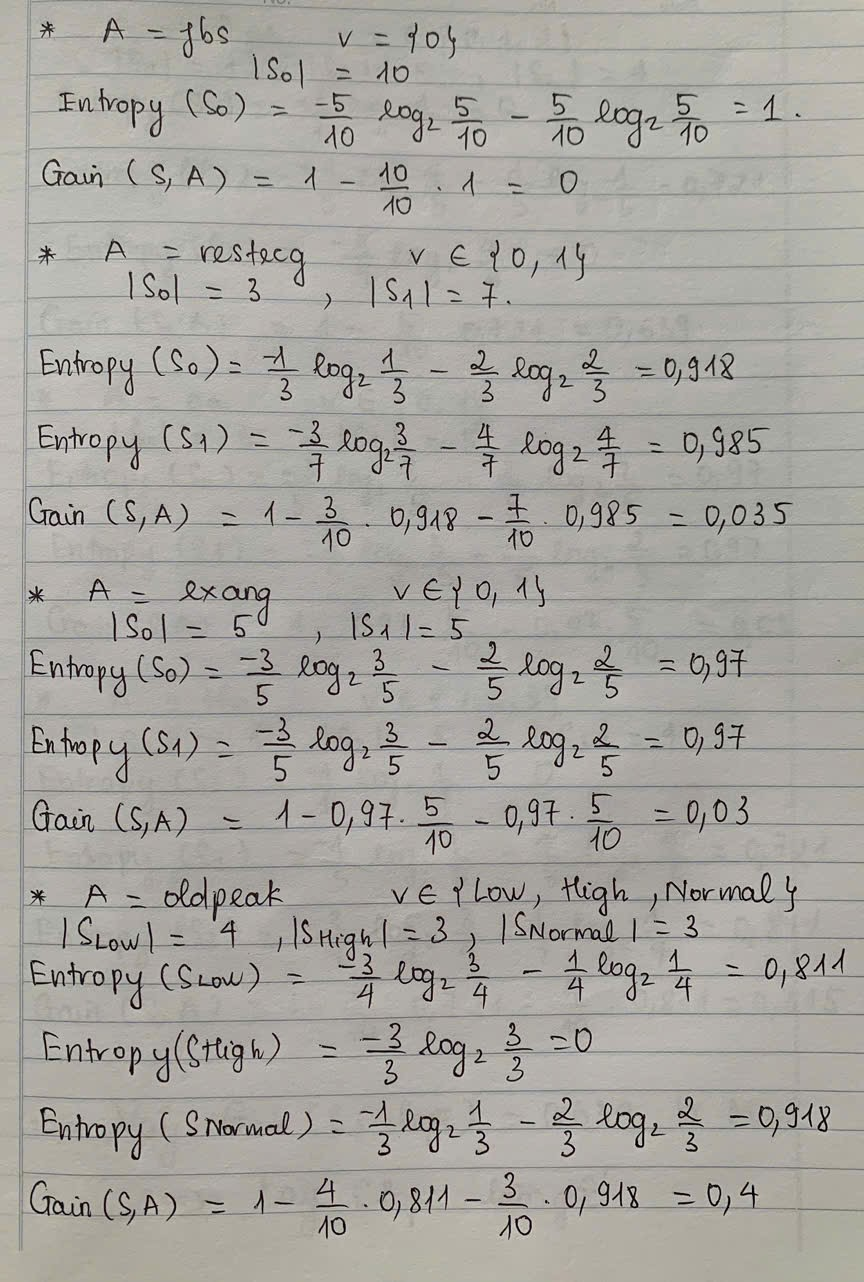 * A = fbs v = {0}
|S0| = 10
Entropy (S0) = -5/10 log2 5/10 - 5/10 log2 5/10 = 1.
Gain (S, A) = 1 - 10/10 . 1 = 0
* A = restecg v ∈ {0, 1}
|S0| = 3 , |S1| = 7.
Entropy (S0) = -1/3 log2 1/3 - 2/3 log2 2/3 = 0,918
Entropy (S1) = -3/7 log2 3/7 - 4/7 log2 4/7 = 0,985
Gain (S, A) = 1 - 3/10 . 0,918 - 7/10 . 0,985 = 0,035
* A = exang v ∈ {0, 1}
|S0| = 5 , |S1| = 5
Entropy (S0) = -3/5 log2 3/5 - 2/5 log2 2/5 = 0,97
Entropy (S1) = -3/5 log2 3/5 - 2/5 log2 2/5 = 0,97
Gain (S, A) = 1 - 0,97 . 5/10 - 0,97 . 5/10 = 0,03
* A = oldpeak v ∈ {Low, High, Normal}
|SLow| = 4 , |SHigh| = 3 , |SNormal| = 3
Entropy (SLow) = -3/4 log2 3/4 - 1/4 log2 1/4 = 0,811
Entropy (SHigh) = -3/3 log2 3/3 = 0
Entropy (SNormal) = -1/3 log2 1/3 - 2/3 log2 2/3 = 0,918
Gain (S, A) = 1 - 4/10 . 0,811 - 3/10 . 0,918 = 0,4